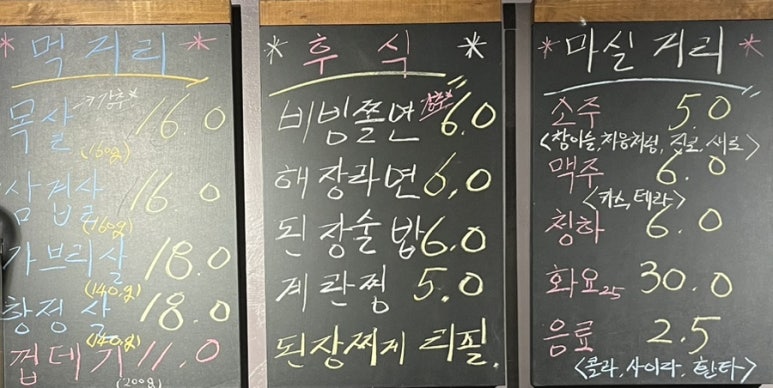 * 먹 거리 *
목살 *강추* 16.0
(160g)
삼겹살 16.0
(160g)
가브리살 18.0
(140g)
항정살 18.0
(140g)
껍데기 11.0
(200g)
* 후 식 *
비빔쫄면 강추* 6.0
해장라면 6.0
된장술밥 6.0
계란찜 5.0
된장찌게 리필.
* 마실 거리 *
소주 5.0
<참이슬, 처음처럼, 진로, 새로>
맥주 6.0
<카스, 테라>
청하 6.0
화요25 30.0
음료 2.5
<콜라, 사이다, 환타>